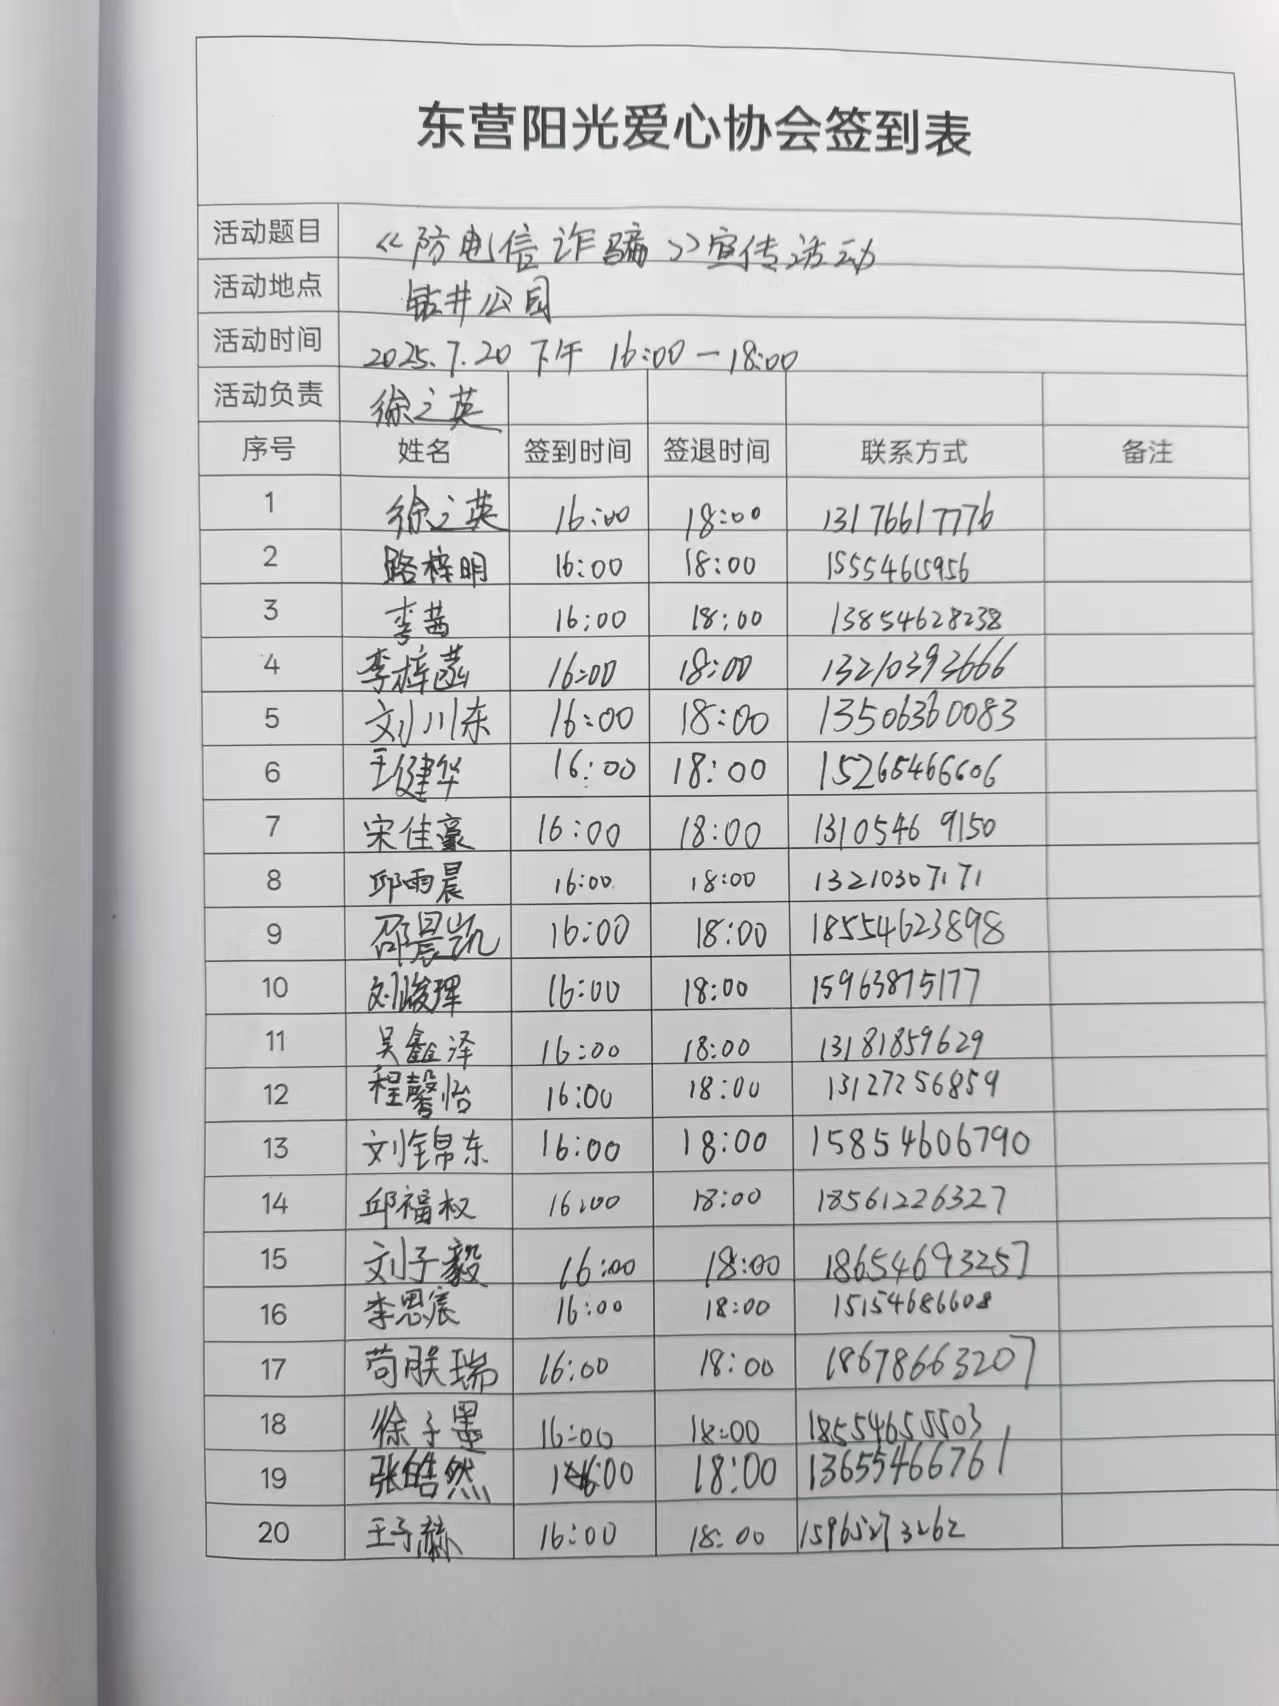 东营阳光爱心协会签到表
活动题目 《防电信诈骗》宣传活动
活动地点 钻井公园
活动时间 2025.7.20 下午 16:00—18:00
活动负责 徐之英
序号 姓名 签到时间 签退时间 联系方式 备注
1 徐之英 16:00 18:00 13176617776
2 路梓明 16:00 18:00 15554615956
3 李茜 16:00 18:00 13854628238
4 李梓菡 16:00 18:00 13210393666
5 刘川东 16:00 18:00 13506360083
6 王健华 16:00 18:00 15265466606
7 宋佳豪 16:00 18:00 13105469150
8 邱雨晨 16:00 18:00 13210307171
9 邵晨凯 16:00 18:00 18554623898
10 刘峻珲 16:00 18:00 15963875177
11 吴鑫泽 16:00 18:00 13181859629
12 程馨怡 16:00 18:00 13127256859
13 刘锦东 16:00 18:00 15854606790
14 邱福权 16:00 18:00 18561226327
15 刘子毅 16:00 18:00 18654693257
16 李恩宸 16:00 18:00 15154686608
17 苟朕瑞 16:00 18:00 18678663207
18 徐子墨 16:00 18:00 18554655503
19 张皓然 16:00 18:00 13655466761
20 王予赫 16:00 18:00 15965273262